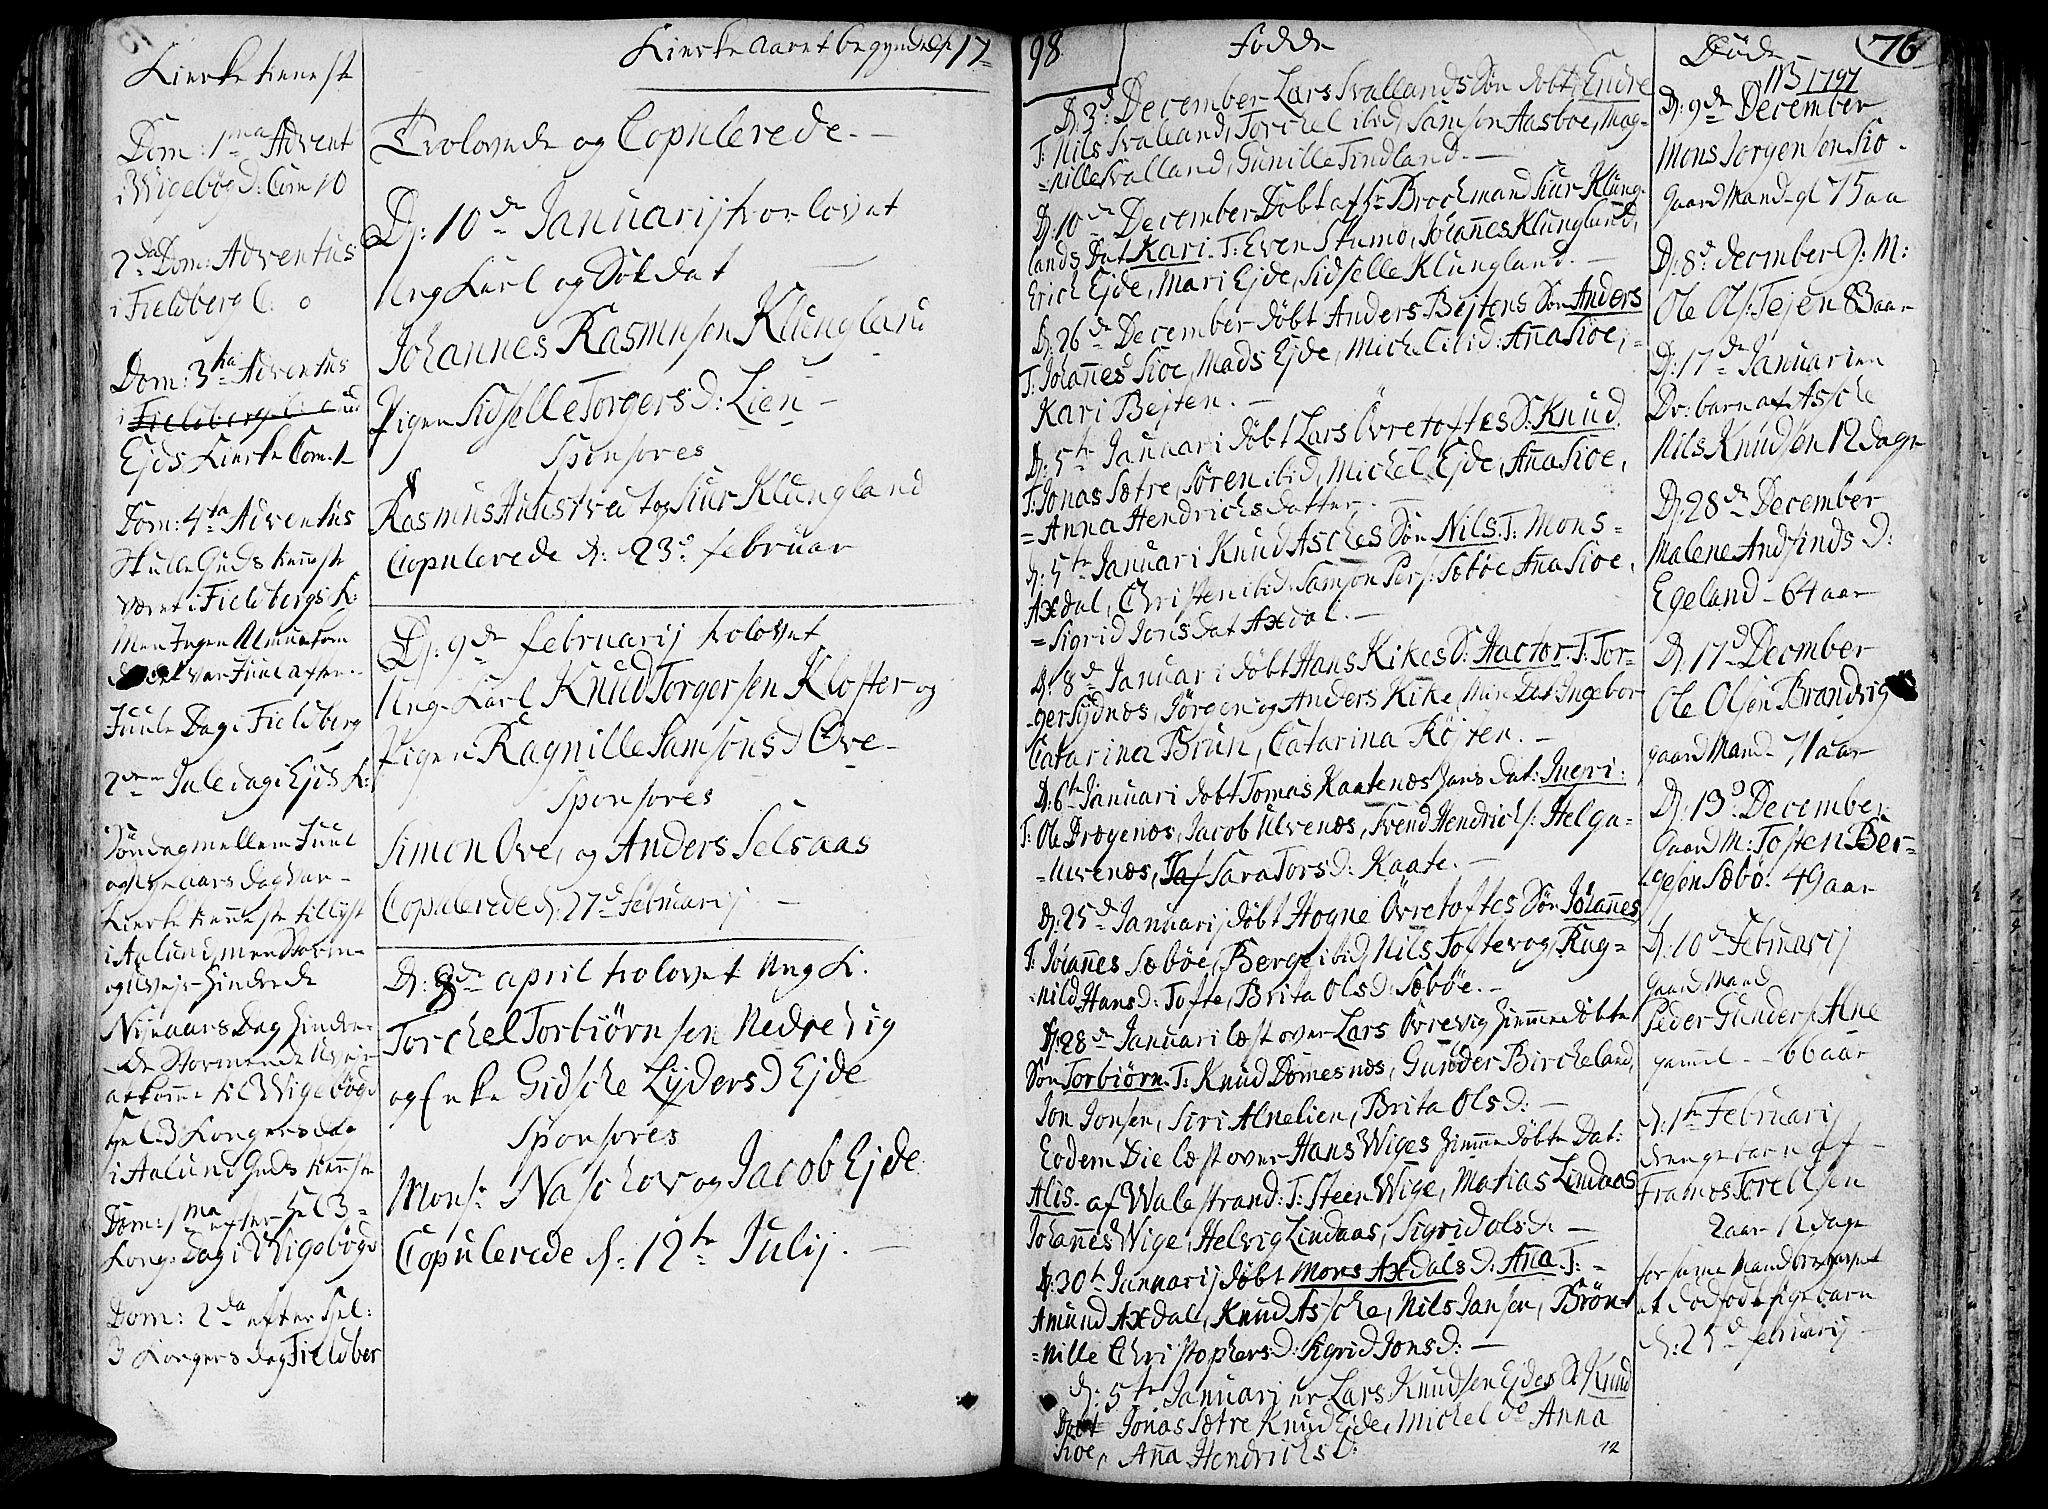 Kierketieneste
Dom: 1ma Advent
i Wigebög D: Com 10
2da Dom: Adventus
i Fieldberg C: 0
Dom: 3tia Adventus
i Fieldberg
Ejds Kierke Com: 1
Dom: 4ta Adventus
Skulle Guds tienneste
været i Fieldbergs K:
Men Ingen Almue kom
var Juul after
Juule Dag i Fieldberg
2den Juledag i Ejds K:
Söndag mellem Juul
og Nye aars Dag var
Kierketienneste tillyst
i Aalund men Storm
og Uvejr hindrede
Nyeaars Dag hindre
de Stormende Uvejr
at komme til Wigebögd
Hel 3 Kongers dag
i Aalund Guds tienneste
Dom: 1ma efter Hel 3
Kong: dag i Wigebögd
Dom: 2da efter Hel:
3 Kongers dag Fieldber
Kierke Aaret begyndelse 17
Trolovede og Copulerede. —
D: 10de Januarij trolovet
Ung Karl og Sök dat
Johannes Rasmusen Klungland
Pigen Sidselle Torgers D: Lien
Sponsores
Rasmus Hustveit og Siur Klungland
Copulerede d: 23d februar
D: 9de februarij trolovet
Ung Karl Knud Torgersen Kloster og
Pigen Ragnille Samsons D Ove
Sponsores
Simon Ove, og Anders Selsaas
Copulerede d: 27d Februarij —
D: 8de april trolovet Ung K.
Torchel Torbiörnsen Nedrevig
og Enke Gidsche Lyders D Ejde
Sponsores
Mons: Naschow og Jacob Ejde
Copulerede d: 12te Julij. —
98
Födde
D: 3d December Lars Svallands Sön döbt Endre
T: Nils Svalland, Torchel ibid, Samson Aasboe, Mag-
=nille Svalland, Gunille Tindland. —
D: 10de December Döbt af Hr Brochmand Siur Klung
lands Dat Kari. T: Even Stumo, Johannes Klungland,
Erich Ejde, Mari Ejde, Sidselle Klungland. —
D: 26de December döbt Anders Bejtens Sön Anders
T: Johannes Sioe, Mads Ejde, Michel ibid: Ana Sioe,
Kari Bejten. —
D: 5te Januari döbt Lars Övretoftes S: Knud.
T: Jonas Sætre, Sören ibid, Michel Ejde, Ana Sioe,
=Anna Hendrichsdatter. —
d: 5te Januari Knud Asches Sön Nils. T: Mons
Axdal, Christen ibid, Samson Pers: Sæböe Ana Sioe,
=Sigrid Jons dat Axdal. —
D: 8d Januari döbt Hans Kikes S: Hactor. T: Tor-
ger Sydnæs, Jörgen og Anders Kike, Min Dat Ingebor
Catarina Brun, Catarina Röiten. —
D: 6te Januari döbt Tomas Kaatenæs Barns dat: Ingri:
T: Ole Drægenæs, Jacob Ulvenæs, Svend Hendrichs: Helga
=Ulvenæs, Sara Tors D: Kaate. —
D: 25d Januarij döbt Hogne Övretoftes Sön Johannes
T: Johannes Sæböe, Berge ibid, Nils Tofte og Rag=
nild Hans D: Tofte, Brita Ols D: Sæböe. —
D: 28de Januari læst over Lars Övrevig hiemmedöbte
Sön Torbiörn. T: Knud Domesnæs, Gunder Bircheland,
Jon Jonsen, Siri Alnelien, Brita Ols D: —
Eodem Die læst over Hans Wiges hiemme döbte Dat:
Alis. af Walestrand: T: Steen Wige, Matias Lindaas
Johannes Wige, Helvig Lindaas, Sigrid Ols d: —
D: 30te Januarij döbt Mons Axdals D: Ana. T: —
Amund Axdal, Knud Asche, Nils Jansen, Brön
=nille Christophers D: Sigrid Jons D: —
d: 5te Januari er Lars Knudsen Ejdes S: Knud
Döbt Jonas Sætre Knud Ejde, Michel do Anna
Sioe, Ana Hendrichs D:
12
Döde
76
1797
D: 9de December
Mons Jörgensen Sio
gaard Mand gl 75 aa
D: 8d december G: M:
Ole Ols: Tejen 83 aar
D: 17de Januarien
Dr: barn af Asche
Nils Knudsen 12 dage
D: 28de December
Malene Anfinds D:
Egeland — 64 aar
D: 17d December
Ole Olsen Brandvig
gaard Mand — 71 aar
D: 13d December
Gaard M: Tosten Ber=
gesen Sæbö. 49 aar
D: 10de Februarij
Gaard Mand
Peder Gunders: Alne
gammel — 66 aar
d: 1te Februarij
drenge barn af
Framos Torelsen
2 aar 12 dage
for same Mand
et dödfödt Pigebarn
d: 25d februarij